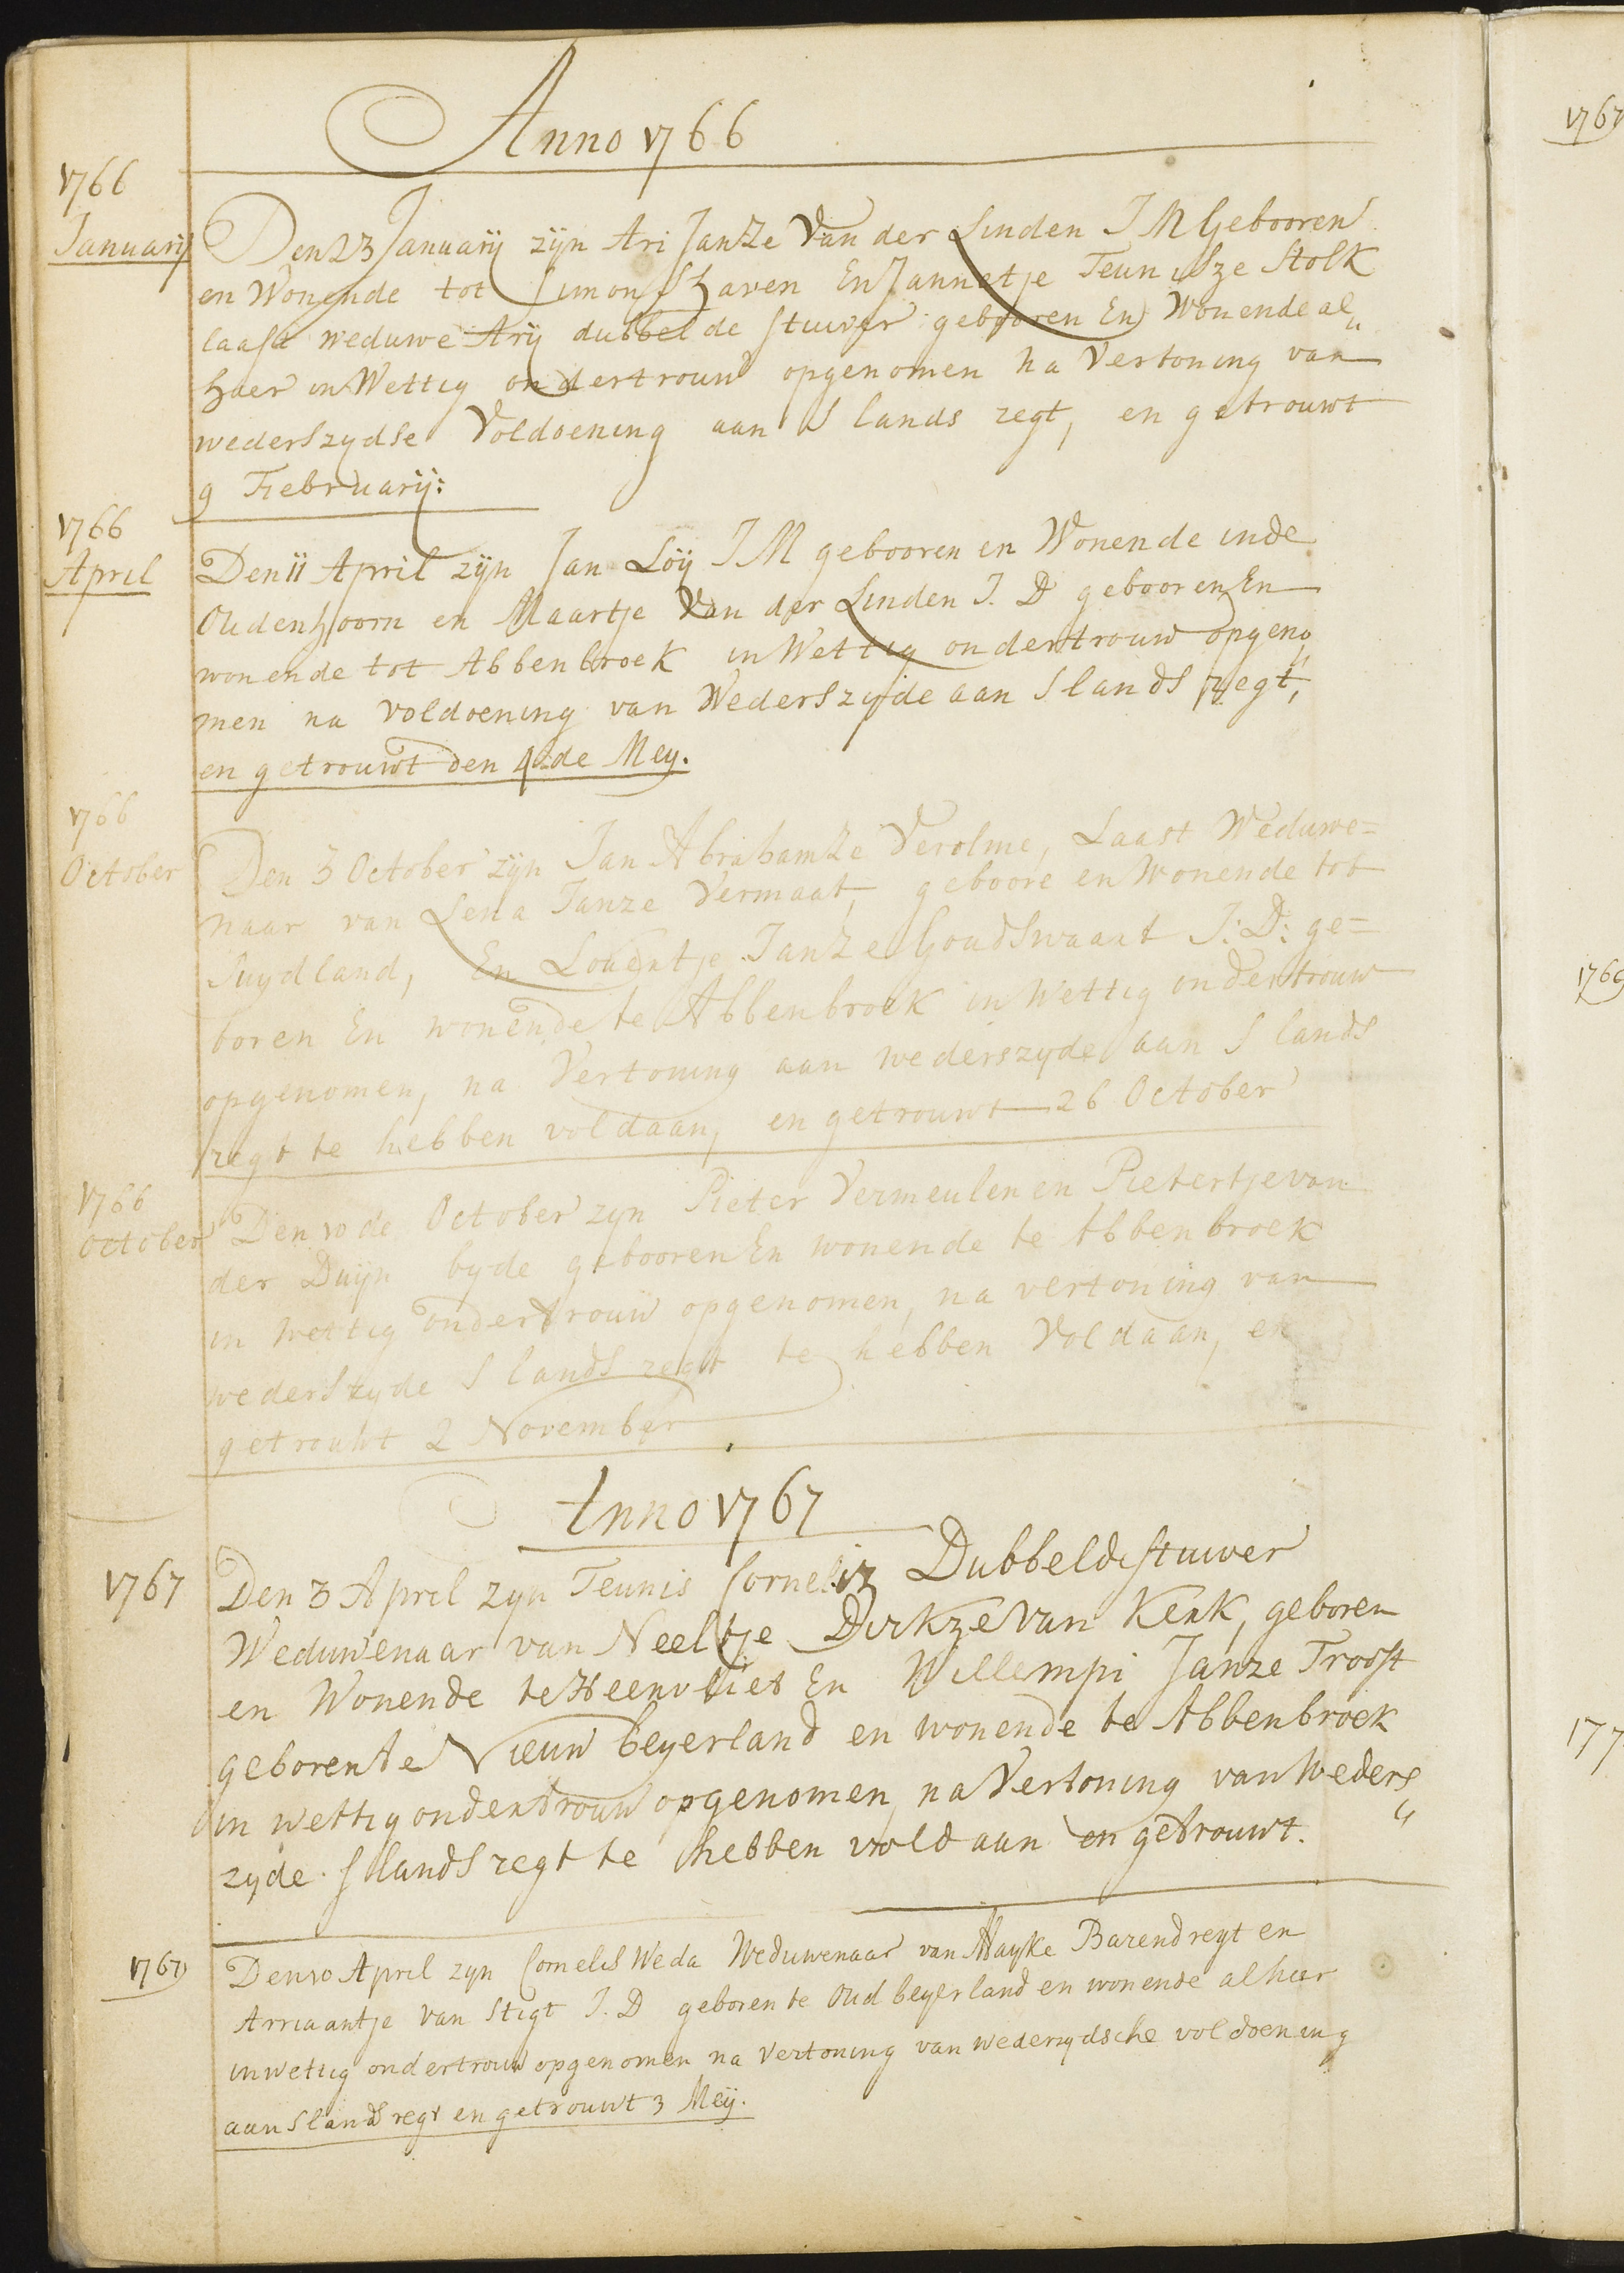 Anno 1766
1766
Januarij
Den 23 Januarij zijn Ari Janze Van der Linden J M Gebooren
en Wonende tot Simonshaven En Jannetje Teunisze Stolk
laast weduwe Arij dubbelde stuiver gebooren En Wonende al„
hier in Wettig ondertrouw opgenomen na Vertoning van
wederszydse Voldoening aan S lands regt, en getrouwt
9 Februarij:
1766
April
Den 11 April zijn Jan Löij J M gebooren en Wonende inde
Oudenhoorn en Maartje Van der Linden J. D gebooren En
wonende tot Abbenbroek in Wettig ondertrouw opgeno„
men na voldoening van Wederszyde aan S lands regt,
en getrouwt den 4de Mey.
1766
October
Den 3 October zijn Jan Abrahamze Verolme, Laast Weduwe=
naar van Lena Janze Vermaat, geboore en Wonende tot
Suydland, En Louentje Janze Goudswaart J: D: ge=
boren En wonende te Abbenbroek in Wettig ondertrouw
opgenomen, na Vertoning aan wederszyde aan S lands
regt te hebben voldaan, en getrouwt 26 October
1766
October
Den 10 de October zyn Pieter Vermeulen en Pietertje van
der Duijn byde gebooren En wonende te Abbenbroek
in wettig ondertrouw opgenomen, na vertoning van
wederszyde S lands regt te hebben Voldaan, en
getrouwt 2 November
Anno 1767
1767
Den 3 April zyn Teunis Corneliz Dubbeldestuiver
Weduwenaar van Neeltje Dirkze van Kerk, geboren
en Wonende te Heenvliet En Willempi Janze Troost
geboren te Nieuw beyerland en wonende te Abbenbroek
in wettig ondertrouw opgenomen na Vertoning van weders„
zyde S lands regt te hebben voldaan en getrouwt.
1767
Den 10 April zyn Cornelis Weda Weduwenaar van Mayke Barendregt en
Arriaantje van Stigt J. D geboren te Oud beyerland en wonende alhier
in wettig ondertrouw opgenomen na Vertoning van wederzydsche voldoening
aan S lands regt en getrouwt 3 Meij.
1767
1769
177